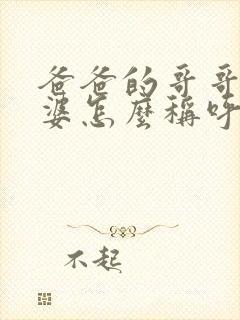 爸爸的哥哥
婆怎麼稱呼
不起